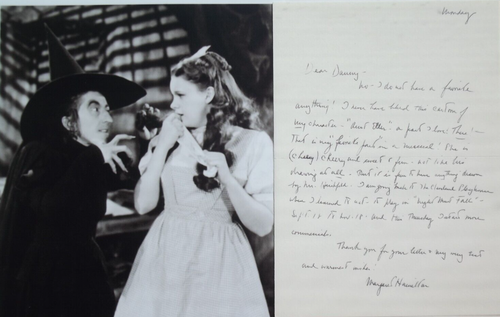 Monday
Dear Danny -
No - I do not have a favorite
anything! I never have liked this cartoon of
my character - "Aunt Eller" a part I love! This -
That is my favorite part in a musical! She is
(cheery) cheery and sweet & fun - not like this
drawing at all. But it is fun to have anything drawn
by Mr.
when I learned to act to play in "Night Must Fall" -
Sept 17 to Nov. 18 - and this Thursday I start more
commercials.
Thank you for your letter & my very best
and warmest wishes
Margaret Hamilton